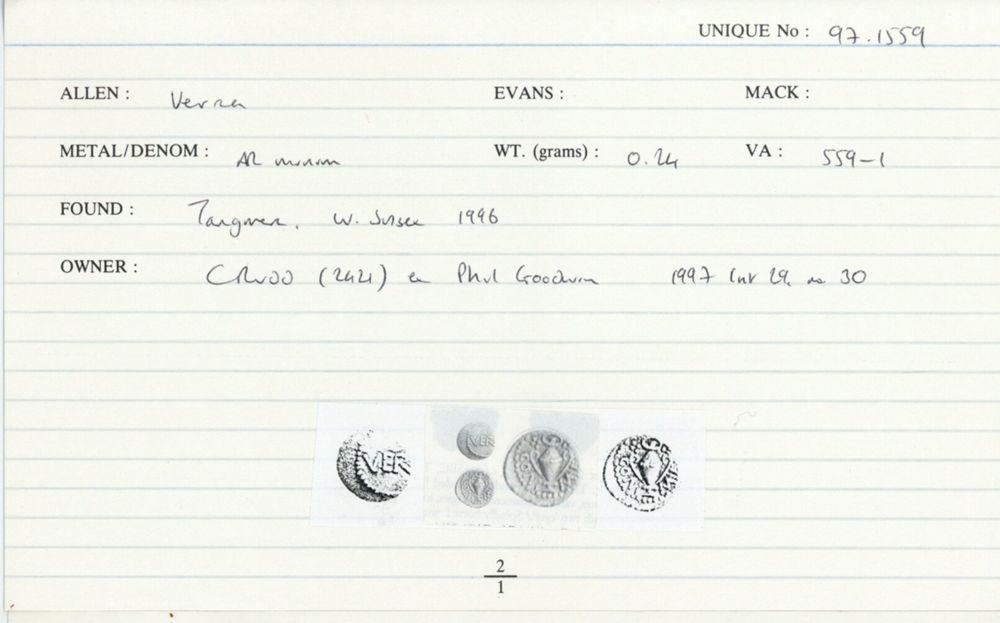 UNIQUE No : 97.1559
ALLEN : Verica EVANS : MACK :
METAL/DENOM : AR minim WT. (grams) : 0.24 VA : 559-1
FOUND : Tangmere, W. Sussex 1996
OWNER : CR (2421) ex Phil Goodwin 1997 29, no 30
VER
VER
2
1